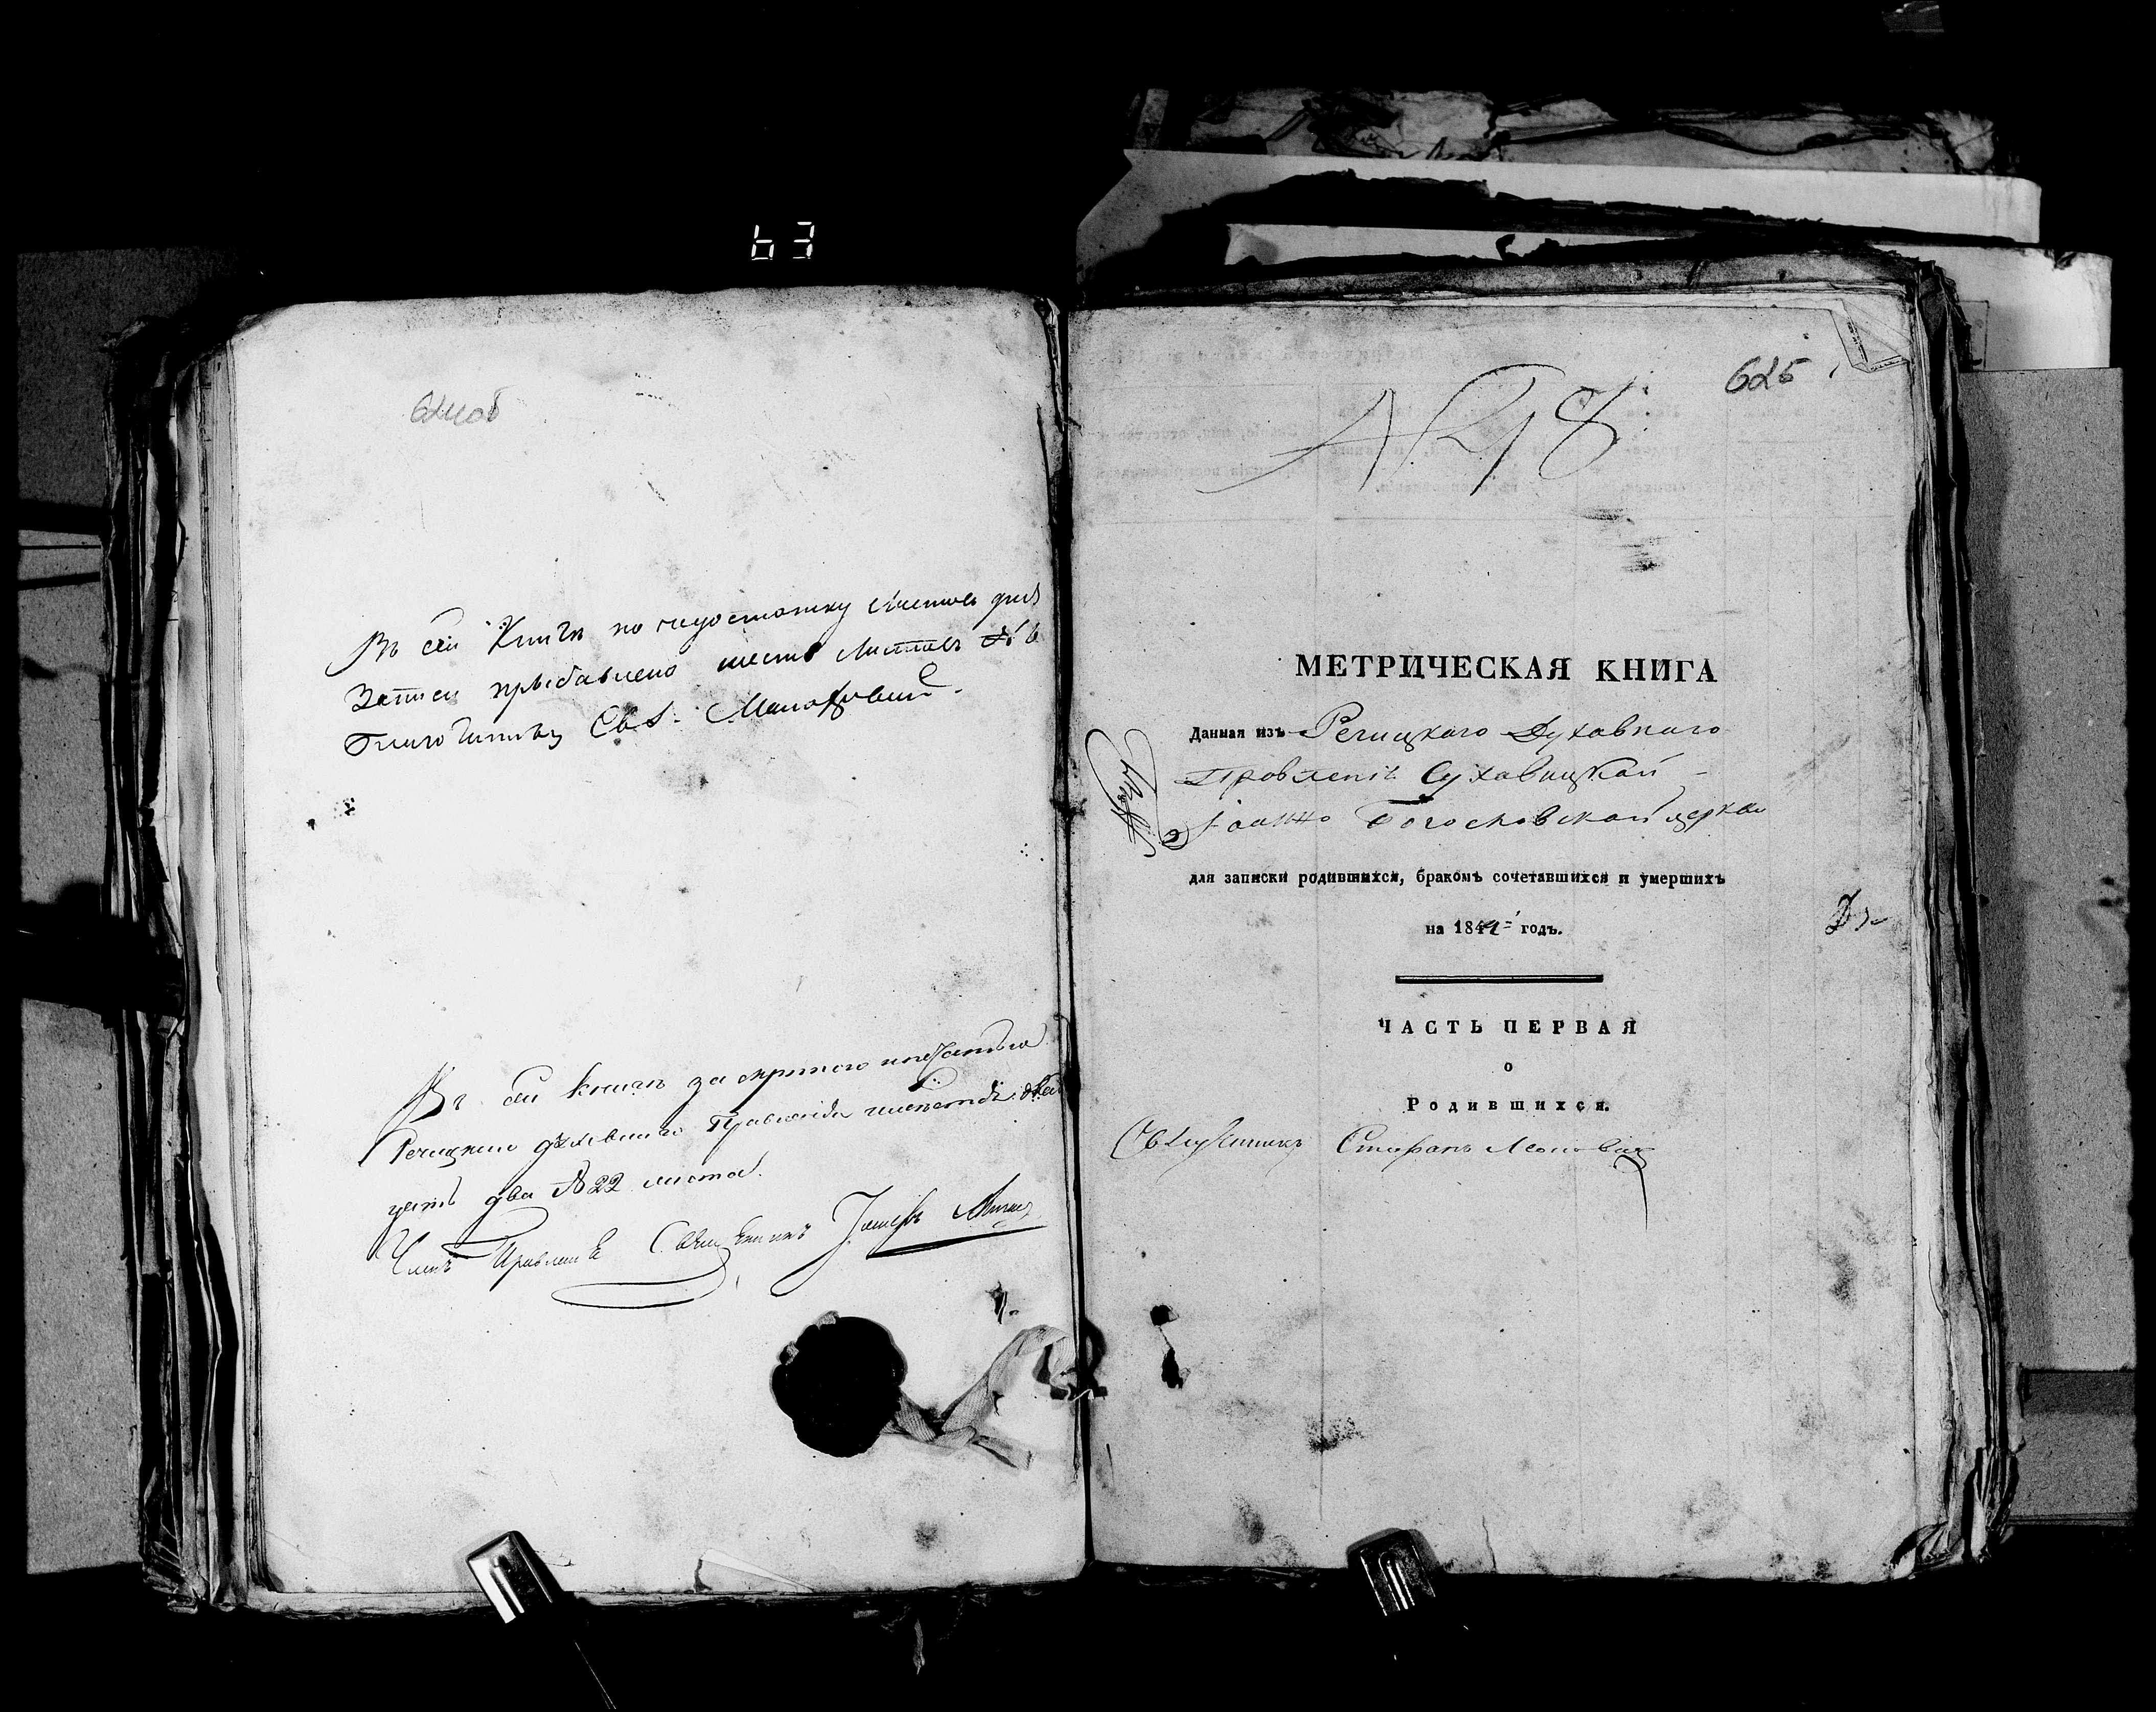 63
624об
Въ сей Книги по недостатку листовъ для
Записи прибавлено шесть листовъ № 6
Благочинный Свящ.
Въ сей книгѣ за скрепою и печатью
Речицкаго духовнаго Правленія листовъ двад
цать два № 22 листа.
Членъ Правленія Священникъ Іосифъ
625
№ 18
МЕТРИЧЕСКАЯ КНИГА
Данная изъ Речицкаго Духовнаго
Правленія Суховицкой
Іоанно Богословской церкви
для записки родившихся, бракомъ сочетавшихся и умершихъ
на 1844 годъ.
ЧАСТЬ ПЕРВАЯ
о
Родившихся.
Священникъ Стефанъ